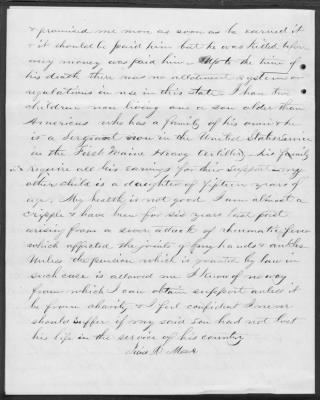 & promised me mon as soon as he earned it
& it should be paid him but he was killed before
any money was paid him - Up to the time of
his death there was no allotment system or
regulations in use in this state I have two
children now living one a son older than
Americus who has a family of his own & he
is a Sergeant now in the United States Service
in the First Maine Heavy Artillery - his family
require all his earnings for their support - my
other child is a daughter of fifteen years of
age. My health is not good I am almost a
cripple & have been for six years last past
arising from a sever attack of rheumatic fever
which affected the joints of my hands & ankles
Unless the pension which is granted by law in
such case is allowed me I know of no way
from which I can obtain support unless it
be from charity & I feel confident I never
should suffer if my said son had not lost
his life in the service of his country